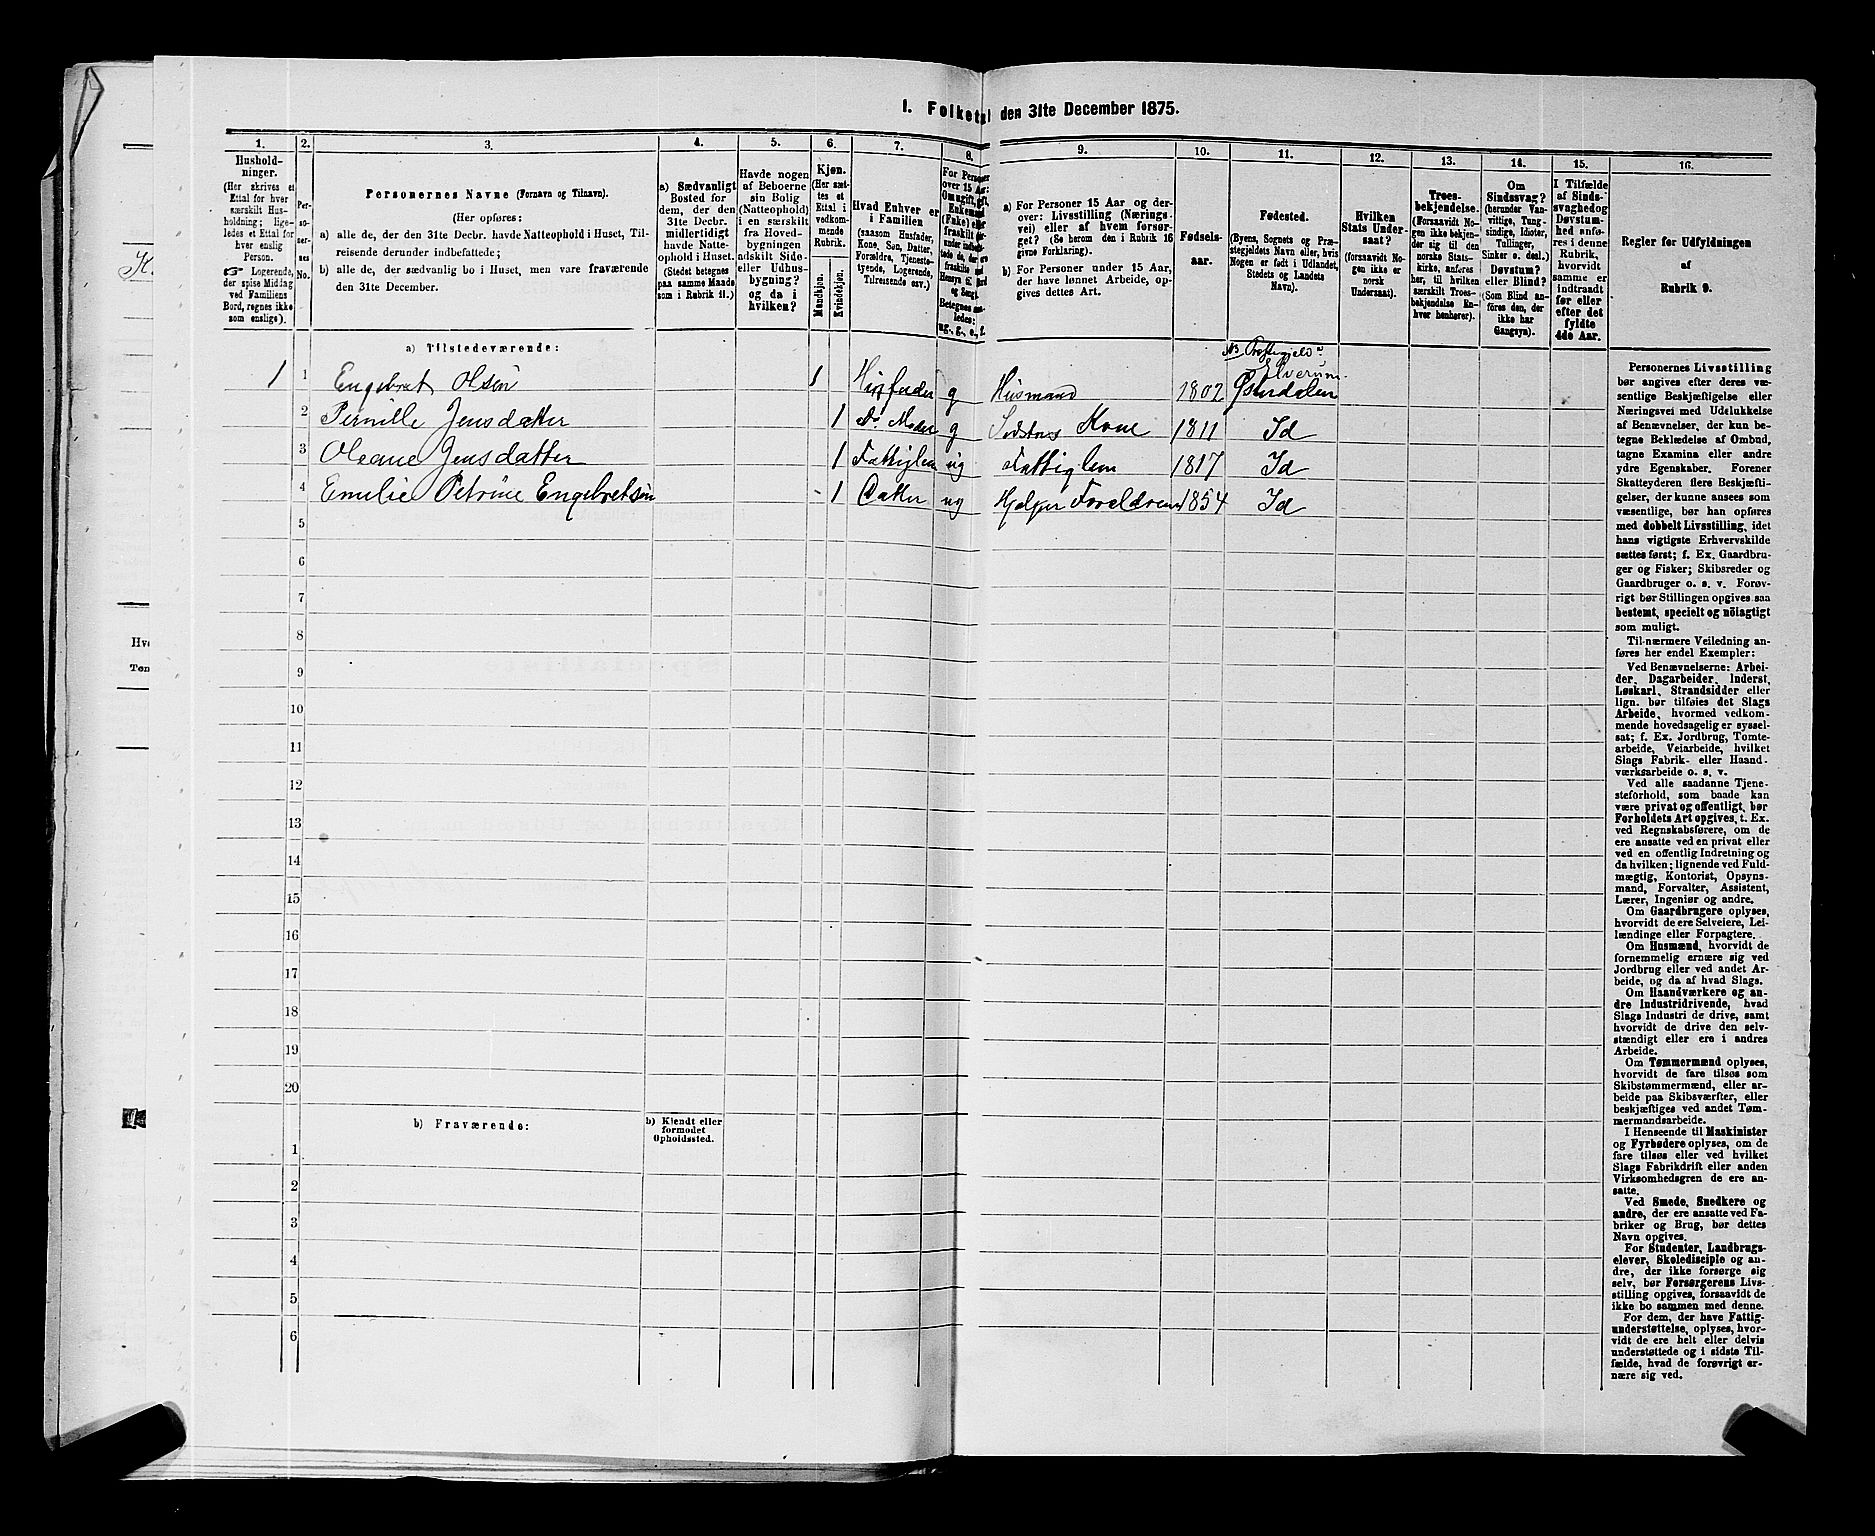 I. Folketal den 31te December 1875.
1. 2. 3. 4. 5. 6. 7. 8. 9. 10. 11. 12. 13. 14. 15. 16.
Hushold-
ninger.
(Her skrives et
Ettal for hver
særskilt Hus-
holdning; lige-
ledes et Ettal for
hver enslig
Person.
☞ Logerende,
der spise Middag
ved Familiens
Bord, regnes ikke
som enslige).
Per-
so-
ner-
nes
No.
Personernes Navne (Fornavn og Tilnavn).
(Her opføres:
a) alle de, der den 31te Decbr. havde Natteophold i Huset, Til-
reisende derunder indbefattede;
b) alle de, der sædvanlig bo i Huset, men vare fraværende
den 31te December.
a) Sædvanligt
Bosted for
dem, der den
31te Decbr.
midlertidigt
havde Natte-
ophold i Huset.
(Stedet betegnes
paa samme Maade
som i Rubrik 11.)
Havde nogen
af Beboerne
sin Bolig
(Natteophold)
i en særskilt
fra Hoved-
bygningen
adskilt Side-
eller Udhus-
bygning?
og da i
hvilken?
Kjøn.
(Her sæt-
tes et
Ettal i
vedkom-
mende
Rubrik.
Mandkjøn.
Kvindekjøn.
Hvad Enhver er
i Familien
(saasom Husfader,
Kone, Søn, Datter,
Forældre, Tjeneste-
tyende, Logerende,
Tilreisende osv.)
For Personer
over 15 Aar:
a) For Personer 15 Aar og der-
over: Livsstilling (Nærings-
vei) eller af hvem forsør-
get? (Se herom den i Rubrik 16
givne Forklaring).
b) For Personer under 15 Aar,
der have lønnet Arbeide, op-
gives dettes Art.
Fødsels-
aar.
Fødested.
(Byens, Sognets og Præ-
stegjeldets Navn eller, hvis
Nogen er født i Udlandet,
Stedets og Landets
Navn).
Hvilken
Stats Under-
saat?
(forsaavidt No-
gen ikke er
norsk
Undersaat).
Troes-
bekjendelse.
(Forsaavidt No-
gen ikke bekjen-
der sig til den
norske Stats-
kirke, anføres
her, til hvilken
særskilt Troes-
bekjendelse En-
hver henhører).
Om
Sindssvag?
(herunder Van-
vittige, Tung-
sindige, Idioter,
Tullinger,
Sinker o. desl.)
Døvstum?
eller Blind?
(Som Blind an-
føres den, der
ikke har
Gangsyn).
I Tilfælde
af Sinds-
svaghed og
Døvstum-
hed anfø-
res i denne
Rubrik,
hvorvidt
samme er
indtraadt
før eller
efter det
fyldte
4de Aar.
Regler for Udfyldningen
af
Rubrik 9.
a) Tilstedeværende:
1 1 Engebret Olsen 1 Husfader g Husmand 1802 Elverum Østerdalen
2 Pernille Jensdatter 1 Do Moder g Kone 1811 Id
3 Oleane Jensdatter 1 Fattiglem ug Fattiglem 1817 Id
4 Emilie Petrine Engebretsen 1 Datter ug Hjelper Foreldrene 1854 Id
5
6
7
8
9
10
11
12
13
14
15
16
17
18
19
20
b) Fraværende:
b) Kjendt eller
formodet
Opholdssted.
1
2
3
4
5
6
Personernes Livsstilling
bør angives efter deres væ-
sentlige Beskjæftigelse eller
Næringsvei med Udelukkelse
af Benævnelser, der kun be-
tegne Beklædelse af Ombud,
tagne Examina eller andre
ydre Egenskaber. Forener
Skatteyderen flere Beskjæfti-
gelser, der kunne ansees som
væsentlige, bør han opføres
med dobbelt Livsstilling, idet
hans vigtigste Erhvervskilde
sættes først; f. Ex. Gaardbru-
ger og Fisker; Skibsreder og
Gaardbruger o. s. v. Forøv-
rigt bør Stillingen opgives saa
bestemt, specielt og nöiagtigt
som muligt.
Til nærmere Veiledning an-
føres her endel Exempler:
Ved Benævnelserne: Arbei-
der, Dagarbeider, Inderst,
Løskarl, Strandsidder eller
lign. bør tilføies det Slags
Arbeide, hvormed vedkom-
mende hovedsagelig er syssel-
sat; f. Ex. Jordbrug, Tomte-
arbeide, Veiarbeide, hvilket
Slags Fabrik- eller Haand-
værksarbeide o. s. v.
Ved alle saadanne Tjene-
steforhold, som baade kan
være privat og offentligt, bør
Forholdets Art opgives, t. Ex.
ved Regnskabsførere, om de
ere ansatte ved en privat eller
ved en offentlig Indretning og
da hvilken; lignende ved Fuld-
mægtig, Kontorist, Opsyns-
mand, Forvalter, Assistent,
Lærer, Ingeniør og andre.
Om Gaardbrugere oplyses,
hvorvidt de ere Selveiere, Lei-
lændinge eller Forpagtere.
Om Husmænd, hvorvidt de
fornemmelig ernære sig ved
Jordbrug eller ved andet Ar-
beide, og da af hvad Slags.
Om Haandværkere og an-
dre Industridrivende, hvad
Slags Industri de drive, samt
hvorvidt de drive den selv-
stændigt eller ere i andres
Arbeide.
Om Tømmermænd oplyses,
hvorvidt de fare tilsøs som
Skibstømmermænd, eller ar-
beide paa Skibsværfter, eller
beskjæftiges ved andet Tøm-
mermandsarbeide.
I Henseende til Maskinister
og Fyrbødere oplyses, om de
fare tilsøs eller ved hvilket
Slags Fabrikdrift eller anden
Virksomhedsgren de ere an-
satte.
Ved Smede, Snedkere og
andre, der ere ansatte ved Fa-
briker og Brug, bør dettes
Navn opgives.
For Studenter, Landbrugs-
elever, Skoledisciple og an-
dre, der ikke forsørge sig
selv, bør Forsørgerens Livs-
stilling opgives, forsaavidt de
ikke bo sammen med denne.
For dem, der have Fattig-
understøttelse, oplyses, hvor-
vidt de ere helt eller delvis
understøttede og i sidste Til-
fælde, hvad de forøvrigt er-
nære sig ved.